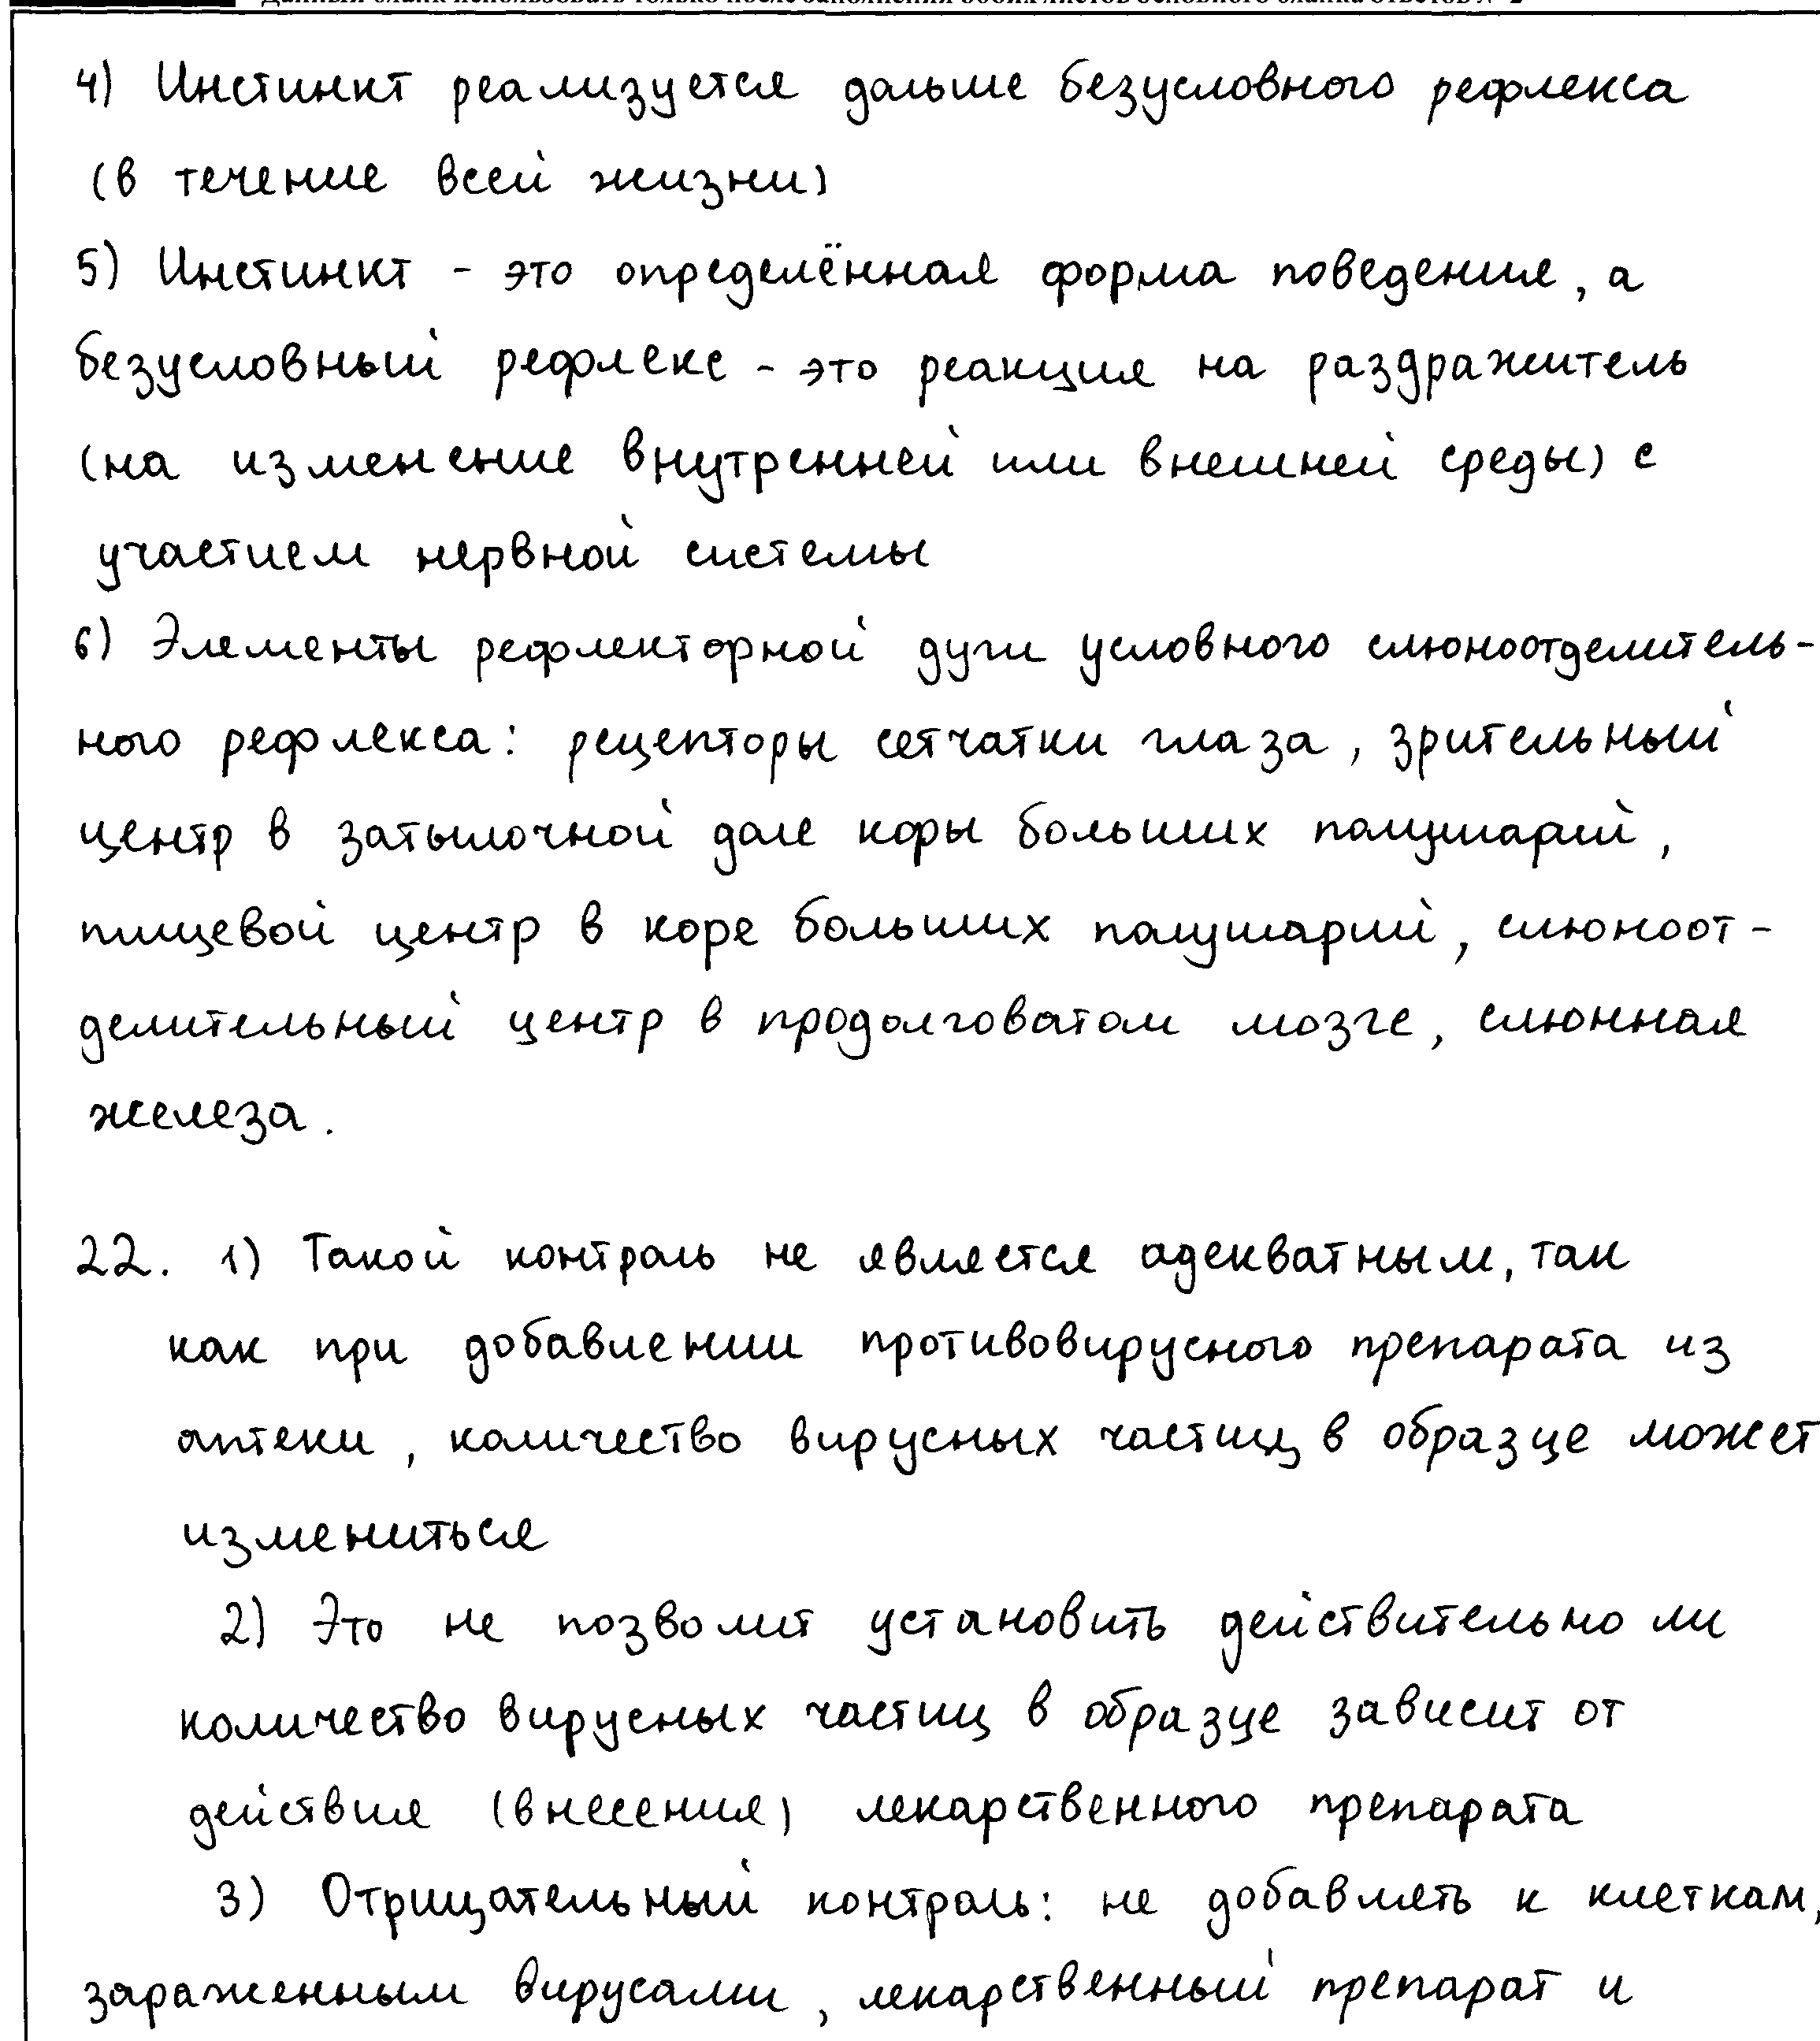 Данный бланк использовать только после заполнения обоих листов основного бланка ответов № 2
4) Инстинкт реализуется дальше безусловного рефлекса
(в течение всей жизни)
5) Инстинкт - это определённая форма поведения, а
безусловный рефлекс - это реакция на раздражитель
(на изменение внутренней или внешней среды) с
участием нервной системы
6) Элементы рефлекторной дуги условного слюноотделитель-
ного рефлекса: рецепторы сетчатки глаза, зрительный
центр в затылочной доле коры больших полушарий,
пищевой центр в коре больших полушарий, слюноот-
делительный центр в продолговатом мозге, слюнная
железа.
22. 1) Такой контроль не является адекватным, так
как при добавлении противовирусного препарата из
аптеки, количество вирусных частиц в образце может
измениться
2) Это не позволит установить действительно ли
количество вирусных частиц в образце зависит от
действия (внесения) лекарственного препарата
3) Отрицательный контроль: не добавлять к клеткам,
зараженным вирусами, лекарственный препарат и